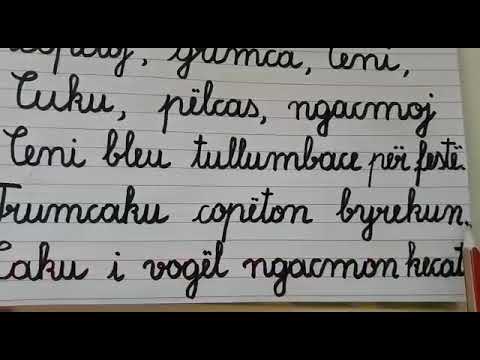 copëtoj, grimca, Ceni,
Cuku, pëlcas, ngacmoj
Ceni bleu tullumbace për festë.
Trumcaku copëton byrekun.
Caku i vogël ngacmon kecat